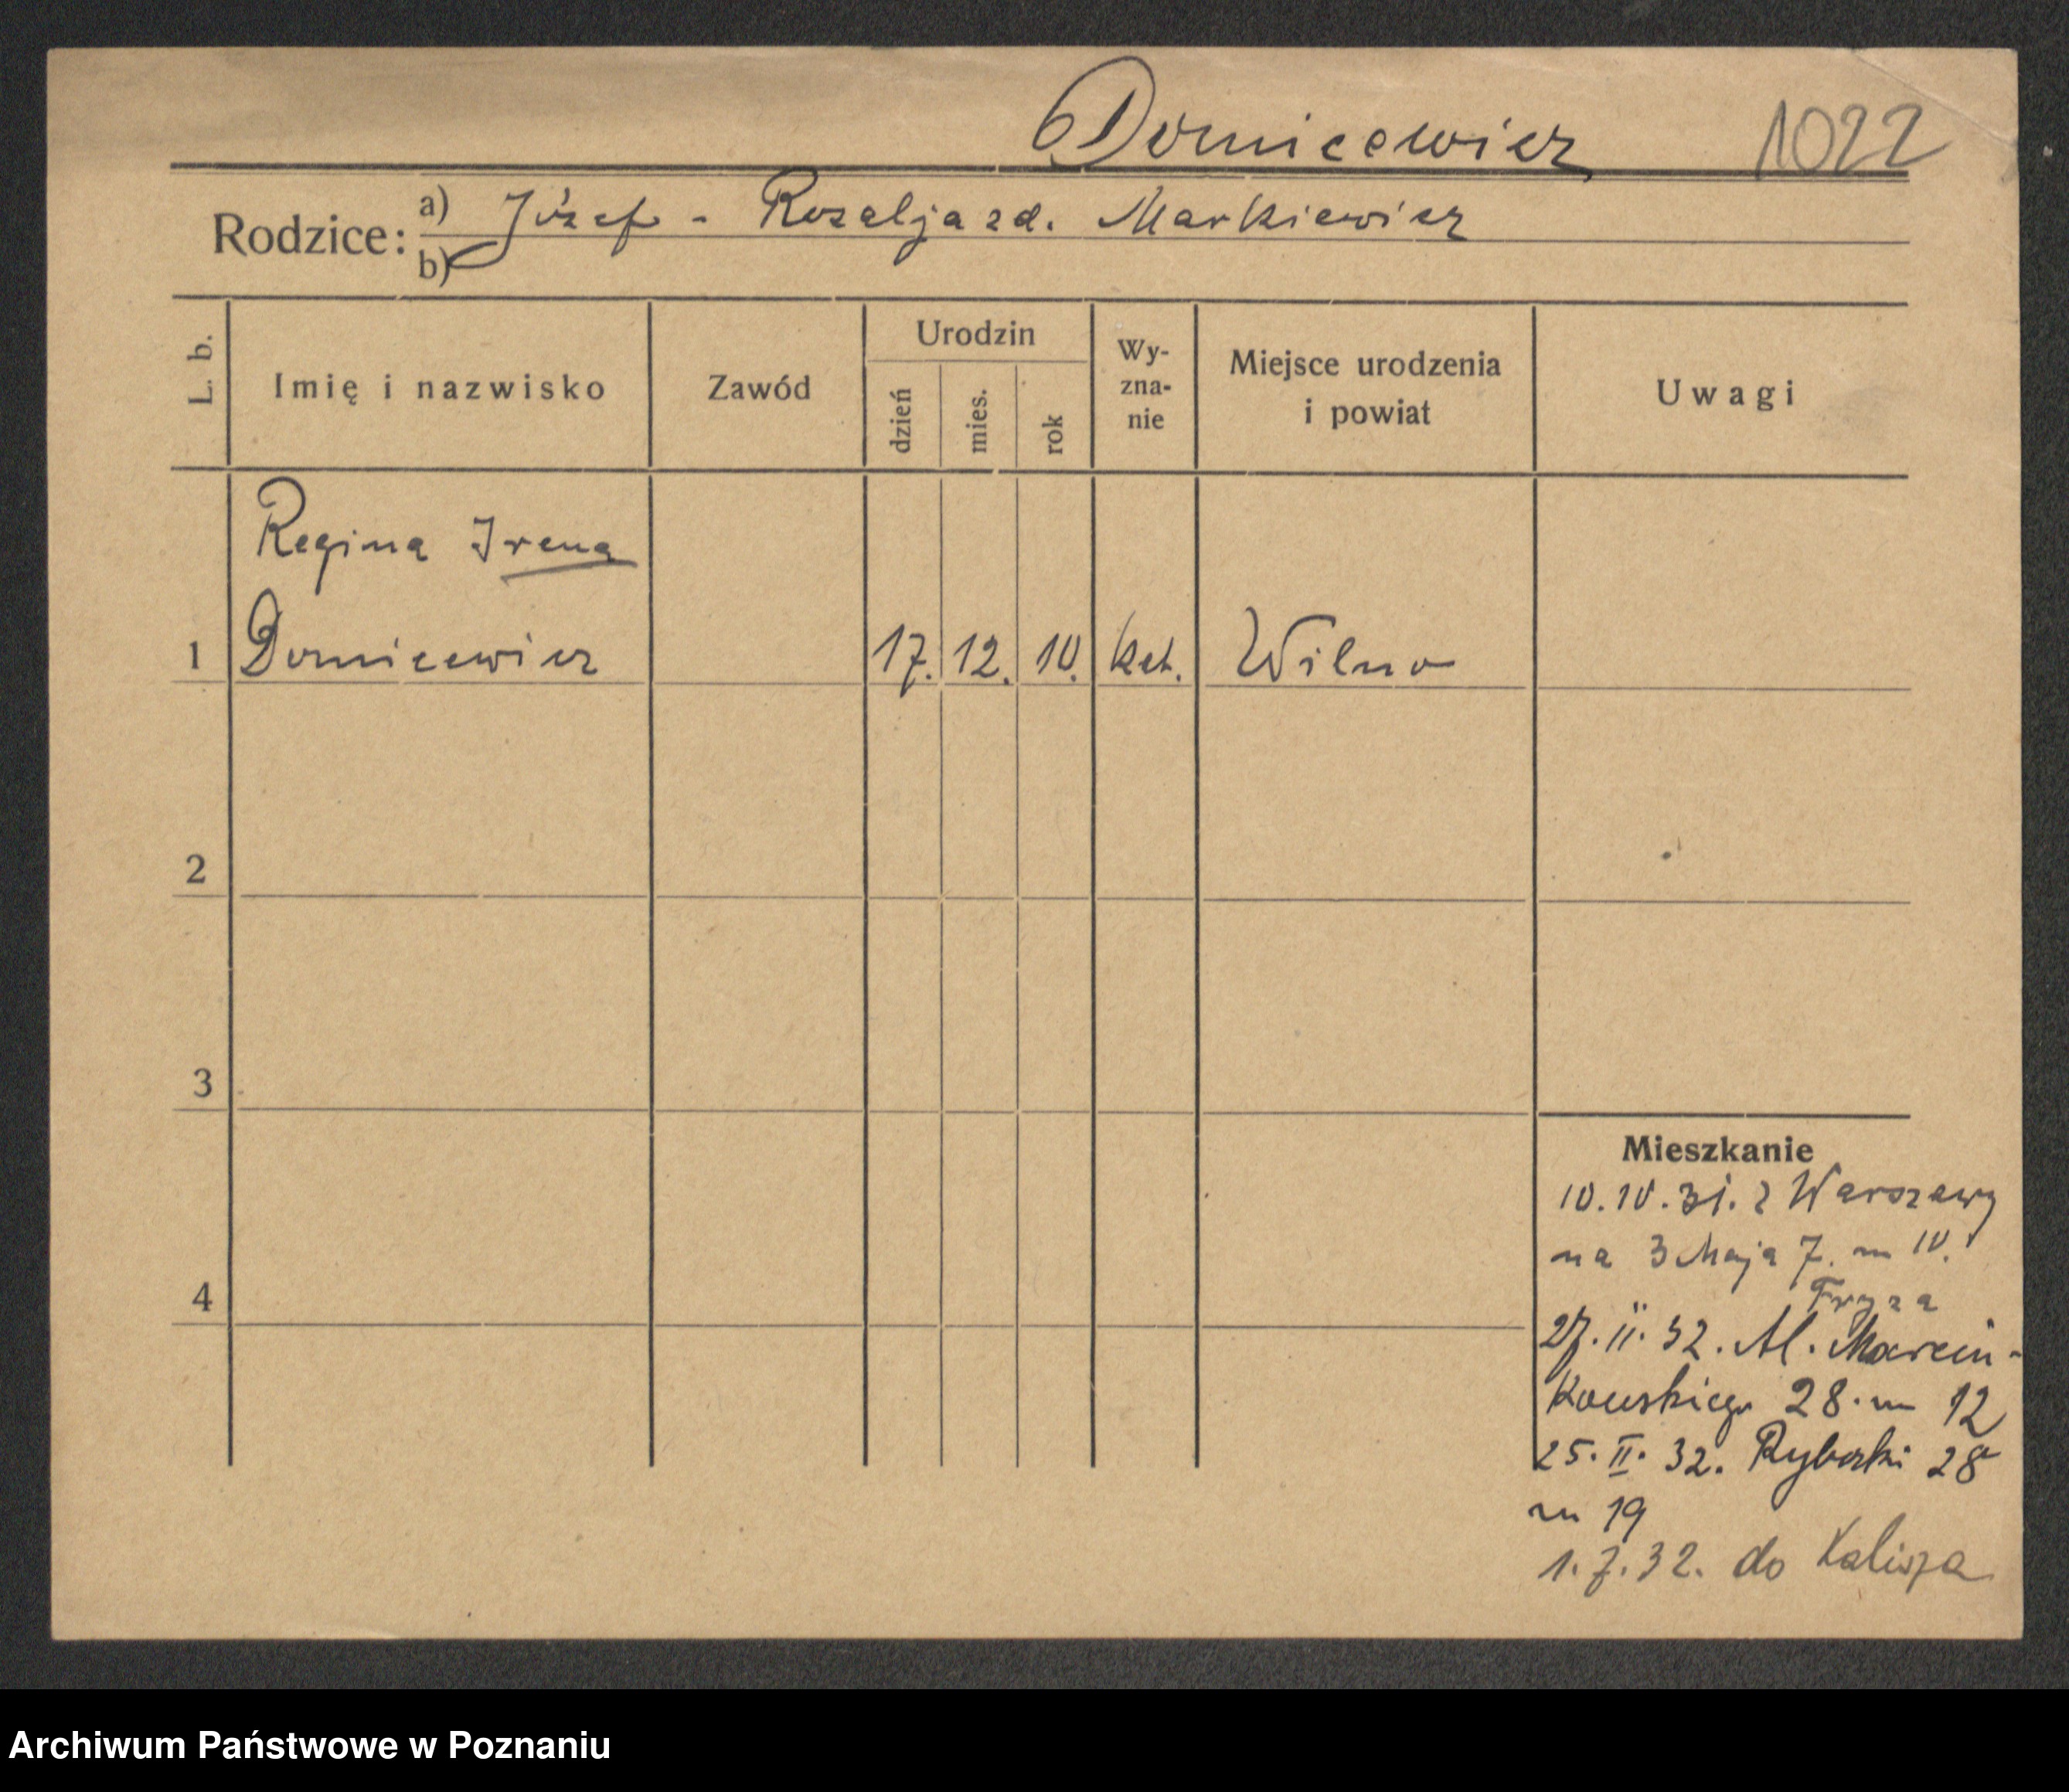 Dornicewicz 1022
Rodzice: a) Józef - Rozalja zd. Markiewicz
b)
L. b. Imię i nazwisko Zawód Urodzin dzień mies. rok Wy-zna-nie Miejsce urodzenia i powiat Uwagi
Regina Irena
1 Dornicewicz 17. 12. 10. kat. Wilno
2
3
Mieszkanie
10.10.31. z Warszawy
na 3 Maja 7. m 10.
4
Fryza
27.II.32. Al. Marcin-
kowskiego 28. m 12
25. II. 32. Rybaki 28
m 19
1.7.32. do Kalisza
Archiwum Państwowe w Poznaniu